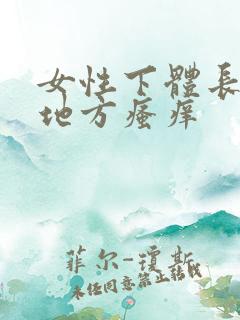 女性下體長
地方瘙痒
菲尔-琼斯
未经同意禁止转载